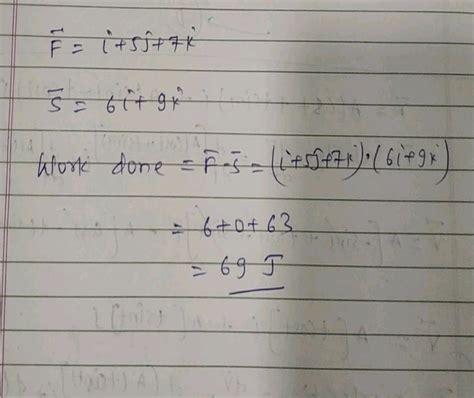 F̅ = i+5j+7k
S̅ = 6i+9k
Work done = F̅·S̅ = (i+5j+7k)·(6i+9k)
= 6+0+63
= 69 J